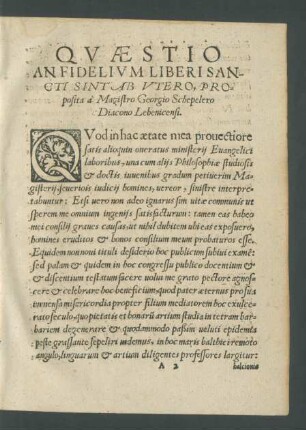 QVÆSTIO
AN FIDELIVM LIBERI SAN-
CTI SINT AB VTERO, PRO-
posita à Magistro Georgio Schepelero
Diacono Lebenicensi.
QVod in hac ætate mea prouectiore
satis alioquin oneratus ministerij Euangelici
laboribus, una cum alijs Philosophiæ studiosis
& doctis iuuenibus gradum petiuerim Ma-
gisterij, seuerioris iudicij homines, uereor, sinistre interpre-
tabuntur: Etsi uero non adeo ignarus sim uitæ communis ut
sperem me omnium ingenijs satisfacturum: tamen eas habeo
mei consilij graues causas, ut nihil dubitem ubi eas exposuero,
homines eruditos & bonos consilium meum probaturos esse.
Equidem non noui tituli desiderio hoc publicum subiui examē:
sed palam & quidem in hoc congressu publico docentium &
& discentium testatum facere uolui me grato pectore agnosce-
re & celebrare hoc beneficium, quod pater æternus pro sua
immensa misericordia propter filium mediatorem hoc exulce-
rato seculo, quo pietatis et bonarū artium studia in tetram bar-
bariem degenerare & quodammodo passim ueluti epidemia
peste grassante sepeliri uidemus, in hoc maris balthici remoto
angulo, linguarum & artium diligentes professores largitur:
A 2